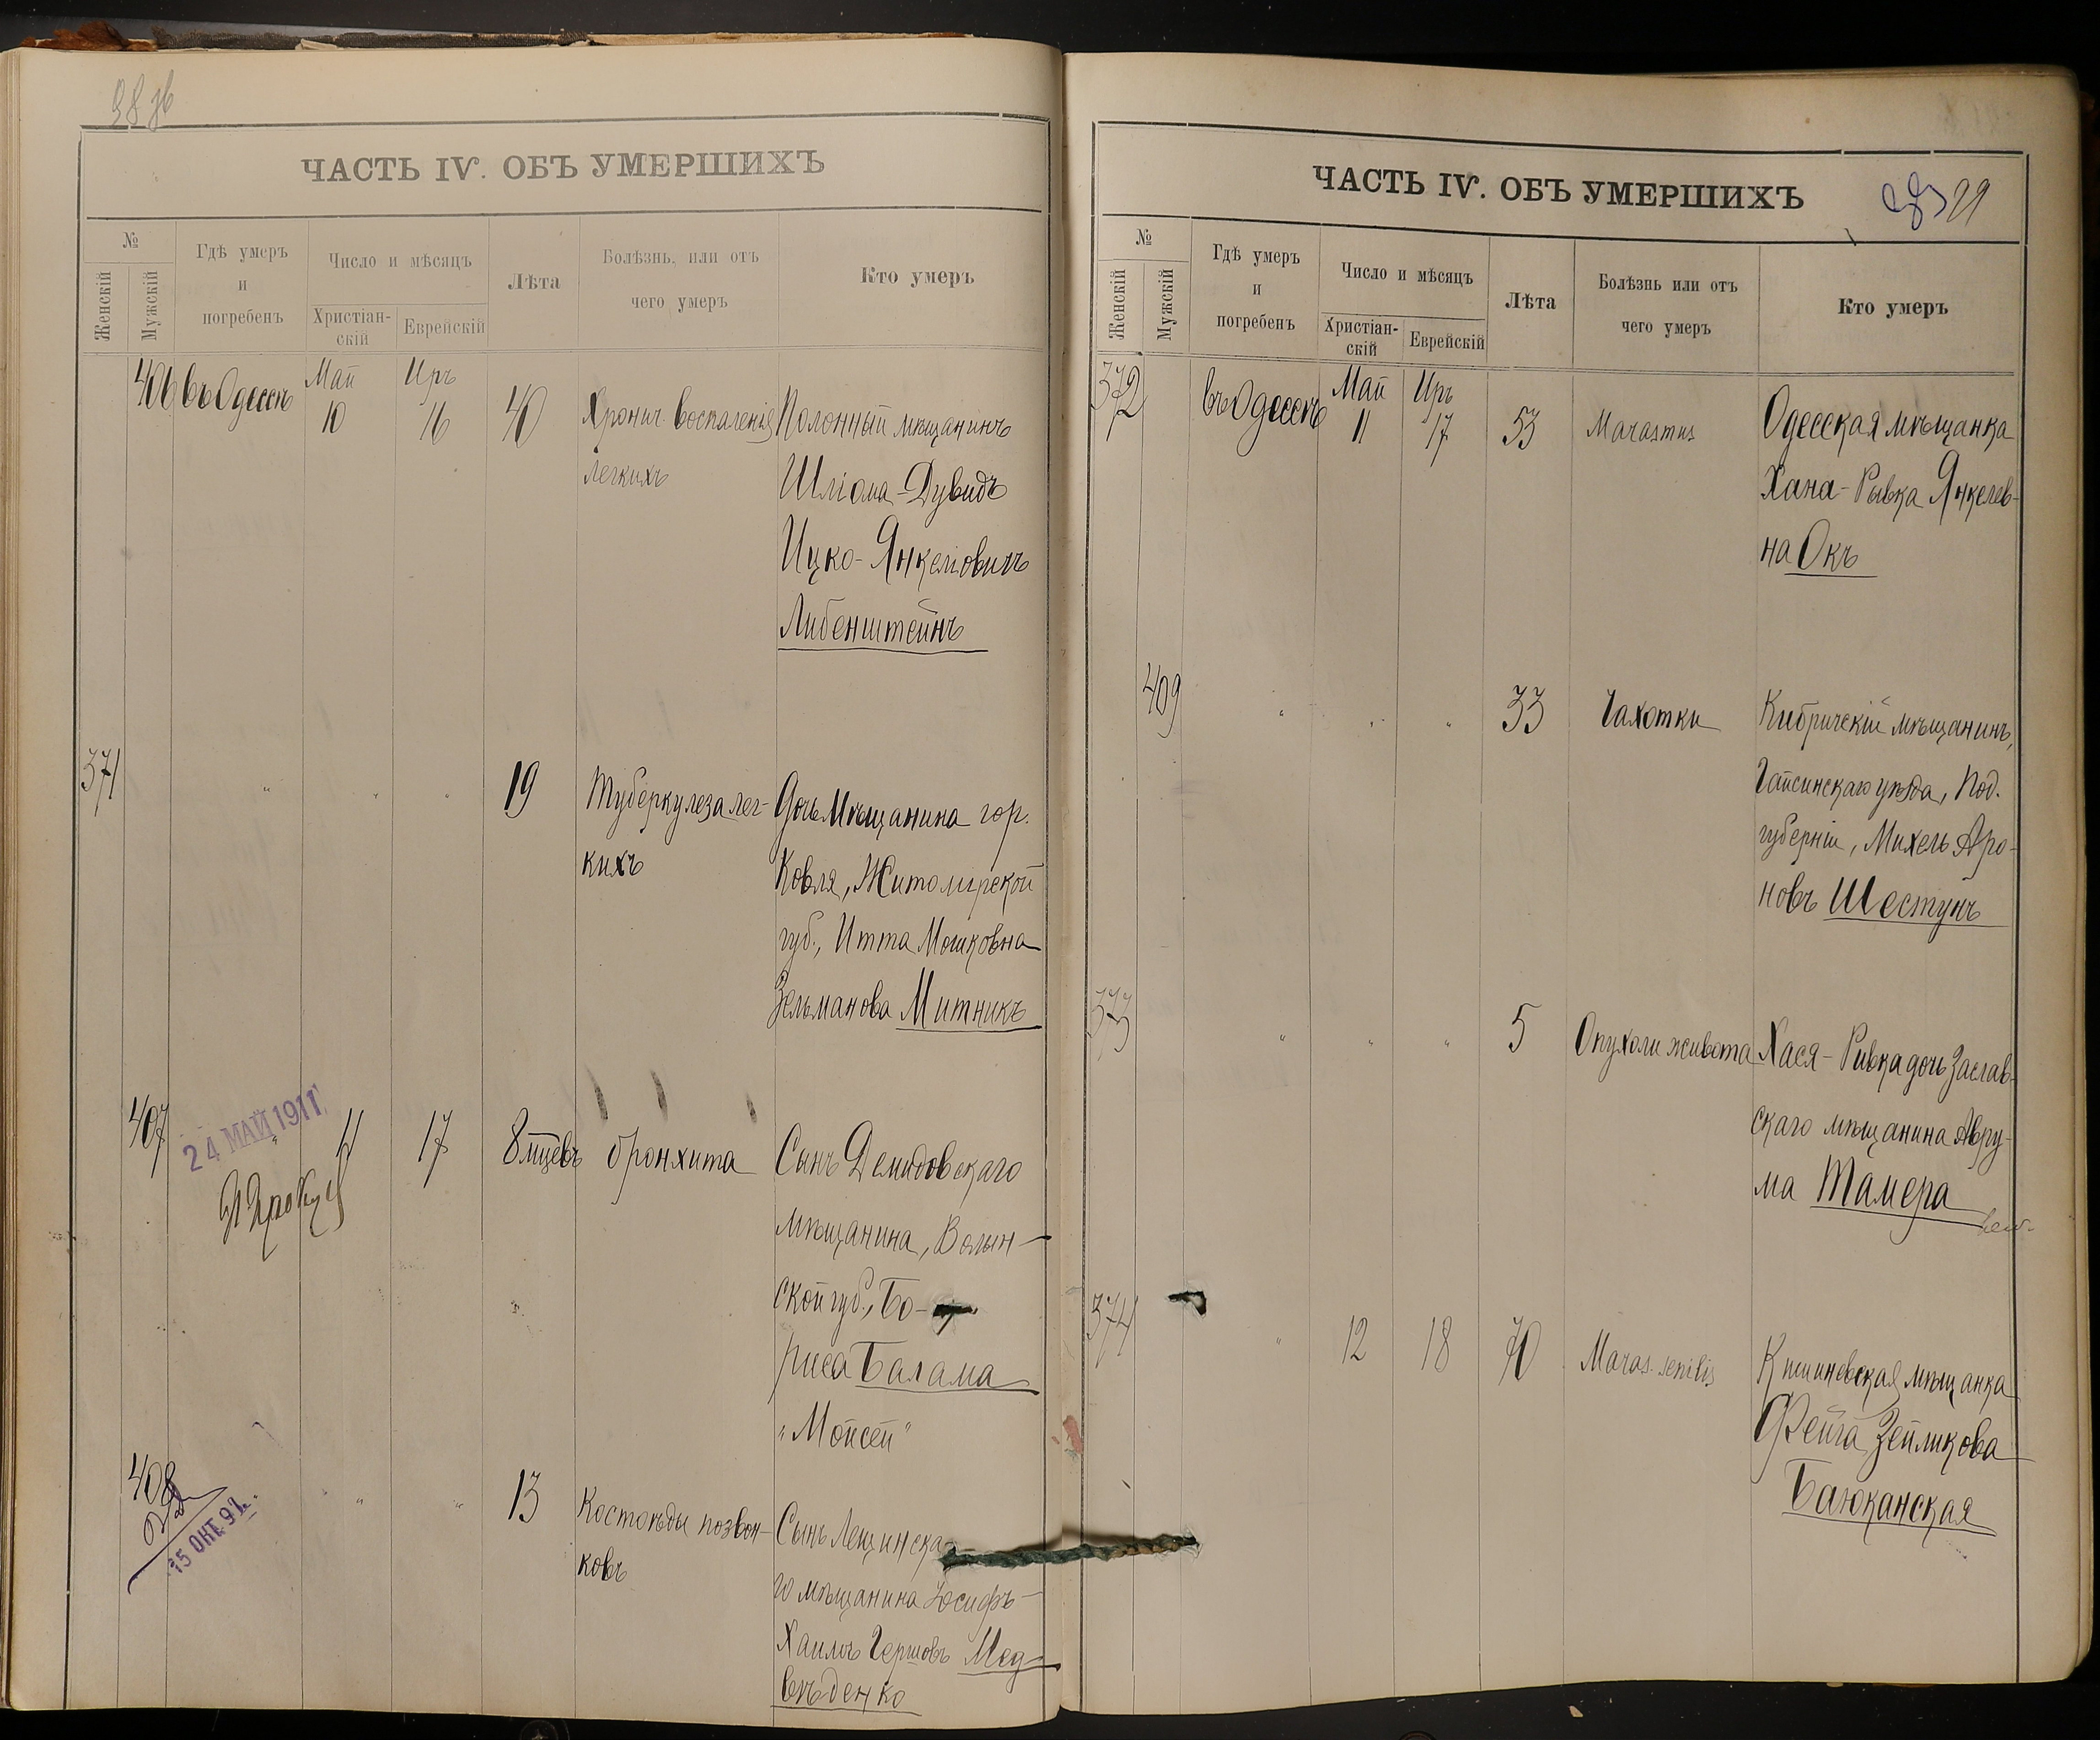 98 зв
ЧАСТЬ IV. ОБЪ УМЕРШИХЪ
№
Женскій
Мужскій
Гдѣ умеръ
и
погребенъ
Число и мѣсяцъ
Христіан-
скій
Еврейскій
Лѣта
Болѣзнь, или отъ
чего умеръ
Кто умеръ
406 въ Одессѣ Май 10 Иръ 16 40 Хронич. воспаленія Полонный мѣщанинъ
легкихъ Шліома-Дувидъ
Ицко-Янкеліовичъ
Либенштейнъ
371 " " " 19 Туберкулеза лег- Дочь Мѣщанина гор.
кихъ Ковля, Житомирской
губ., Итта Мошковна
Зельманова Митникъ
407 " 11 17 8 мцевъ бронхита Сынъ Демидовскаго
24 МАЙ 1911
мѣщанина, Волын-
ской губ., Бо-
риса Балама
"Мойсей"
408 " " 13 Костоѣды позвон- Сынъ Лещинска-
15 ОКТ. 97.
ковъ го мѣщанина Іосифъ-
Хаимъ Гершовъ Мед-
вѣденко
ЧАСТЬ IV. ОБЪ УМЕРШИХЪ
99
№
Женскій
Мужскій
Гдѣ умеръ
и
погребенъ
Число и мѣсяцъ
Христіан-
скій
Еврейскій
Лѣта
Болѣзнь или отъ
чего умеръ
Кто умеръ
372 въ Одессѣ Май 11 Иръ 17 53 Marasmus Одесская мѣщанка
Хана-Рывка Янкелев-
на Окъ
409 " " " 33 Чахотки Кибричскій мѣщанинъ,
Гайсинскаго уѣзда, Под.
губерніи, Михель Аро-
новъ Шестунъ
373 " " " 5 Опухоли живота Хася-Ривка дочь Заслав-
скаго мѣщанина Авру-
ма Тамера
374 " 12 18 70 Maras. senilis Кишиневская мѣщанка
Фейга Зейликова
Баюканская